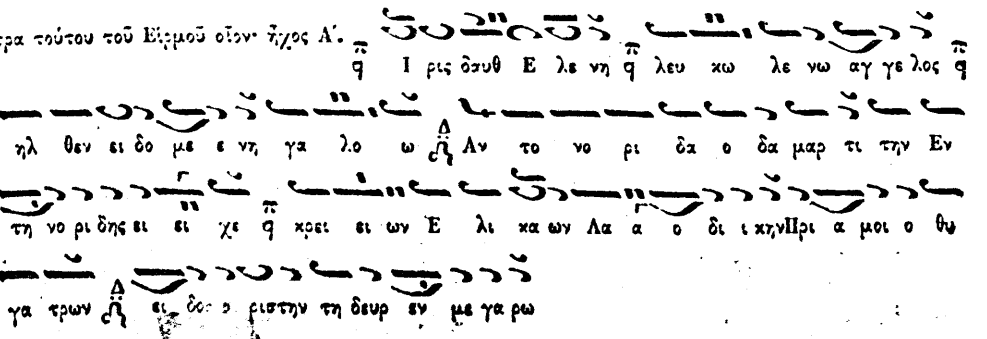 τούτου τοῦ Εἱρμοῦ οἷον· ἦχος Α΄.
π q Ι ρις δαυθ Ε λε νη π q λευ κω λε νω αγ γε λος π q
ηλ θεν ει δο με ε νη γα λο ω Δ Αν το νο ρι δα ο δα μαρ τι την Εν
τη νο ρι δης ει ει χε π q κρει ει ων Ε λι κα ων Λα α ο δι ι κην Πρι α μοι ο θυ
γα τρων Δ ει δο ριστην τη δευρ εν με γα ρω